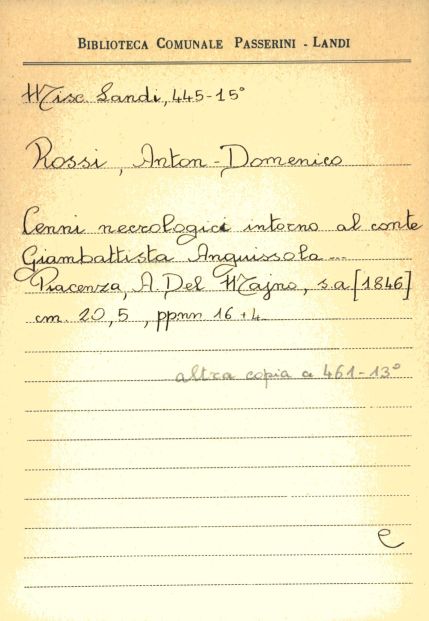 BIBLIOTECA COMUNALE PASSERINI - LANDI
Misc. Landi, 445-15°
Rossi, Anton-Domenico
Cenni necrologici intorno al conte
Giambattista Anguissola...
Piacenza, A. Del Majno, s.a. [1846]
cm. 20,5, ppnn 16+4
altra copia a 461-13°
e